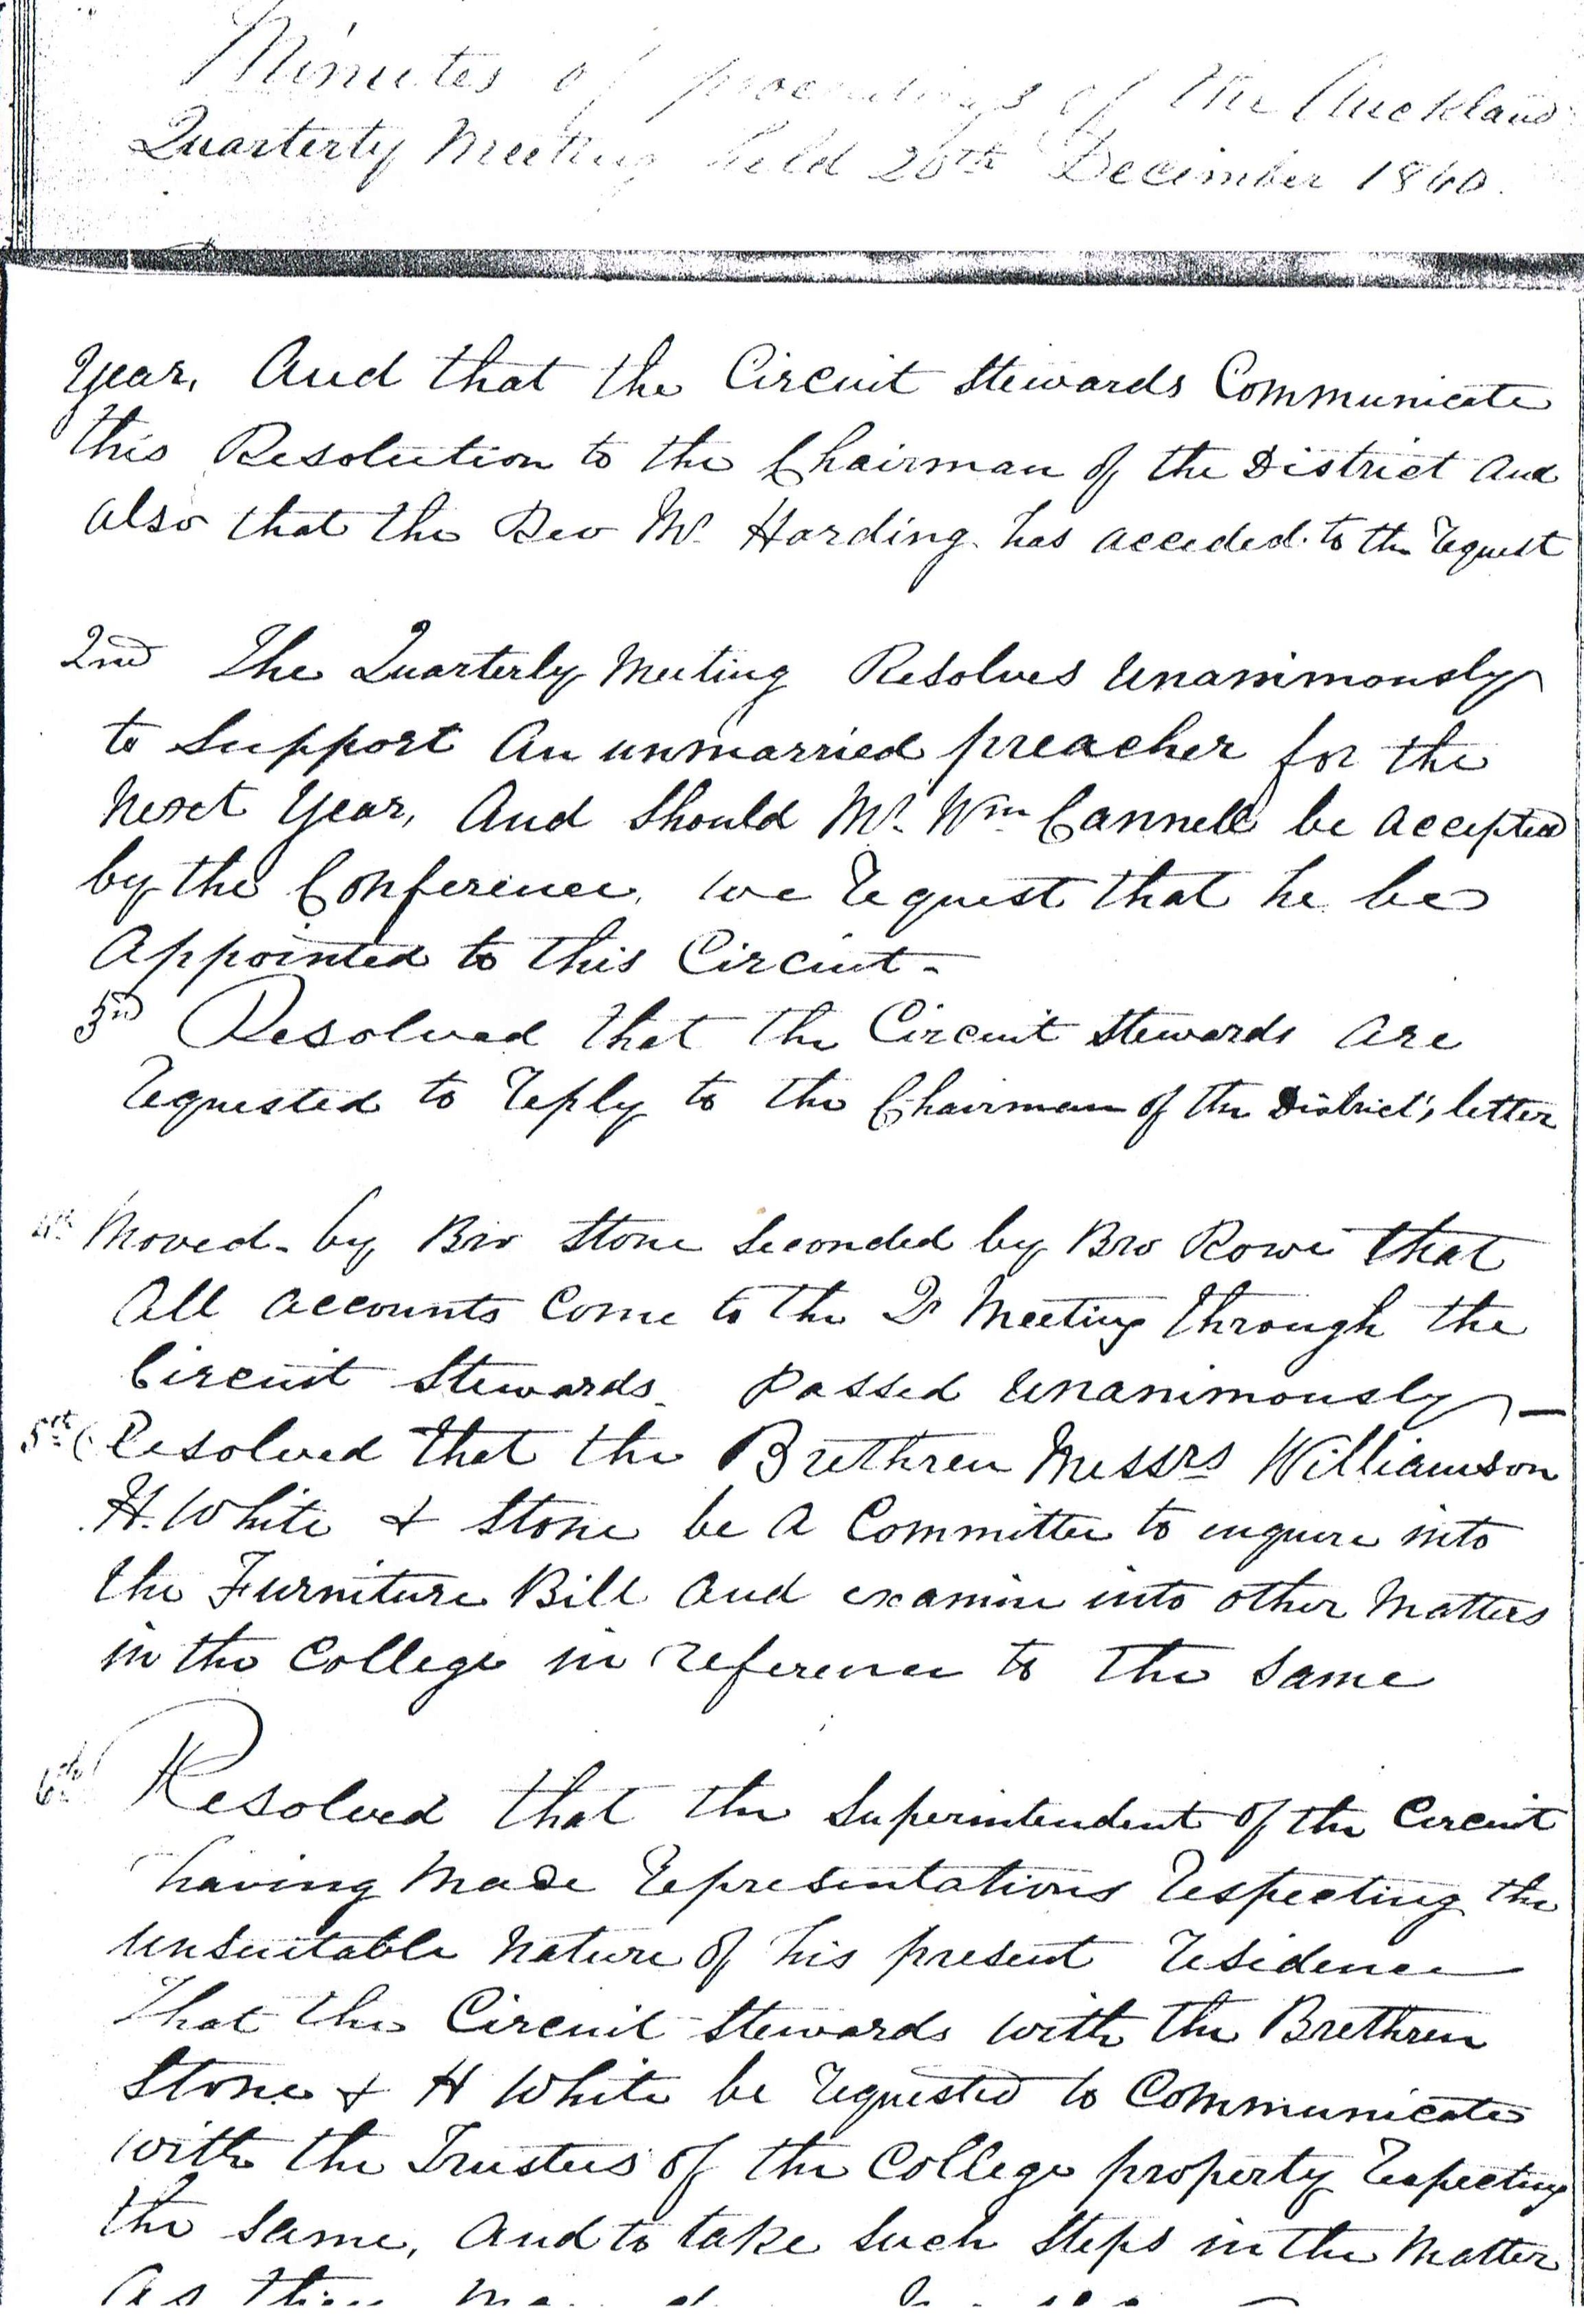 Minutes of proceedings of the Auckland
Quarterly Meeting held 20th December 1860.
Year, And that the Circuit Stewards Communicate
this Resolution to the Chairman of the District And
also that the Rev Mr Harding has acceded to the request
2nd The Quarterly Meeting Resolves Unanimously
to Support An unmarried preacher for the
Next Year, And Should Mr. Wm Cannell be accepted
by the Conference, we request that he be
Appointed to this Circuit -
3rd Resolved that the Circuit Stewards are
requested to reply to the Chairman of the District's letter
4th Moved - by Bro Stone Seconded by Bro Rowe that
All accounts Come to the Qr Meeting through the
Circuit Stewards. Passed Unanimously —
Resolved that the Brethren Messrs Williamson
H. White & Stone be a Committee to enquire into
the Furniture Bill and examine into other Matters
in the College in reference to the Same
6th Resolved that the Superintendent of the Circuit
having made representations respecting the
Unsuitable Nature of his present residence
That the Circuit Stewards with the Brethren
Stone & H White be requested to Communicate
with the Trustees of the College property respecting
the same, and to take Such Steps in the Matter
As they may